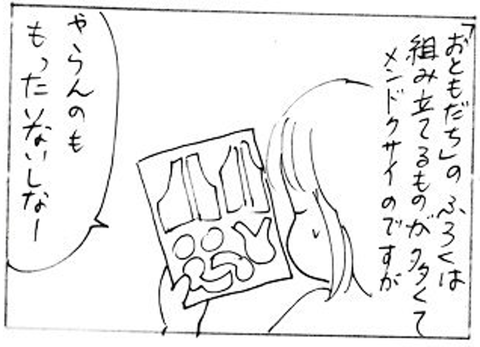 「おともだち」の ふろくは
組み立てるものが多くて
メンドクサイのですが
やらんのも
もったいないしなー